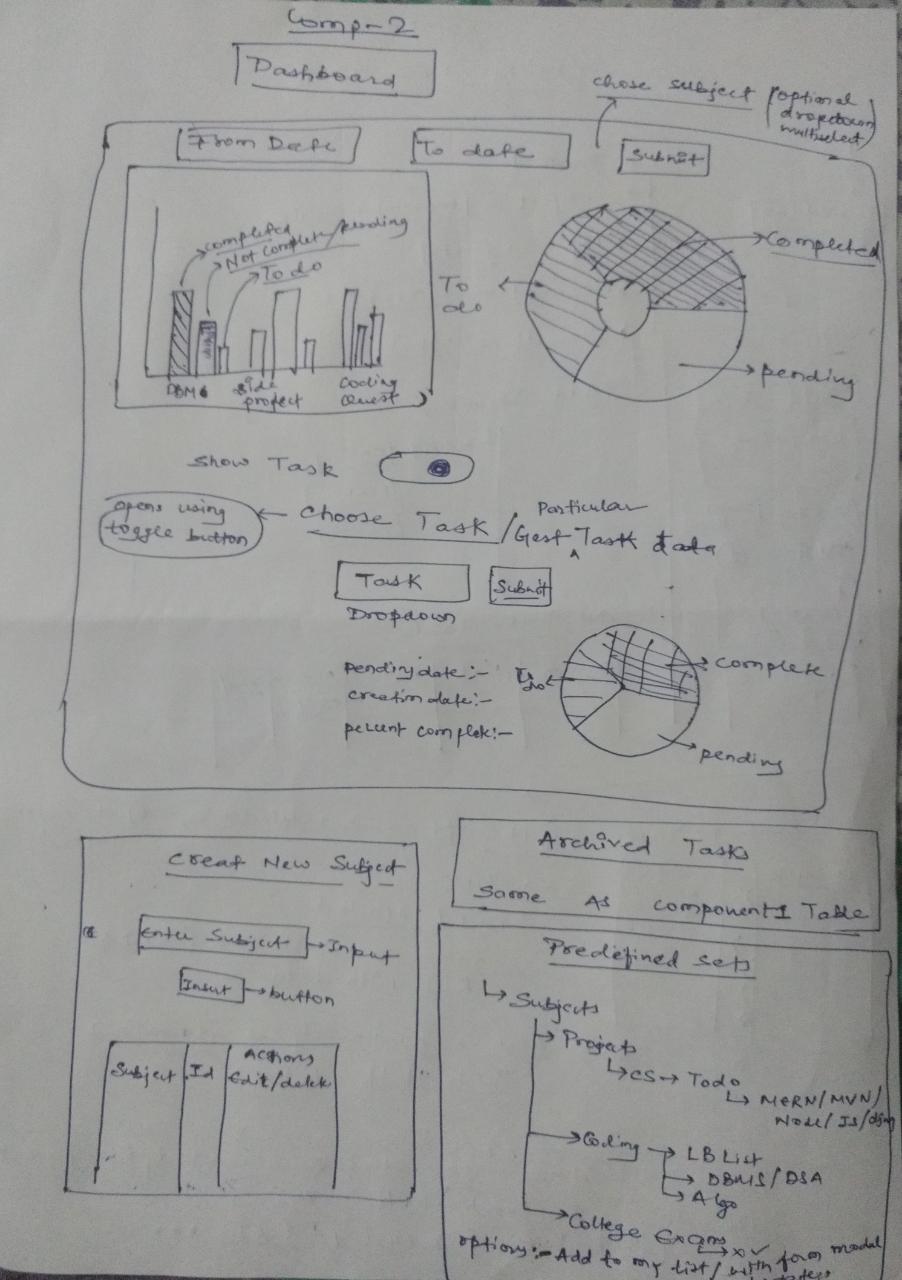 Comp-2
Dashboard
chose subject (optional
dropdown
multiselect)
From Date
To date
Submit
completed
Not complete/pending
To do
DBMS
Side
project
Coding
Quest
To
do
Completed
pending
Show Task
opens using
toggle button
Choose Task / Gest Particular Task data
Task
Submit
Dropdown
pending date:-
creation date:-
percent complete:-
To
do
complete
pending
Creat New Subject
Enter Subject
Input
Insert
button
Subject
Id
Actions
Edit/delete
Archived Tasks
Same As component 1 Table
Predefined sets
Subjects
Projects
CS → Todo
MERN/MVN/
Node/JS/
Coding
LB List
DBMS/DSA
Algo
College Exams
options:- Add to my list/with form modal